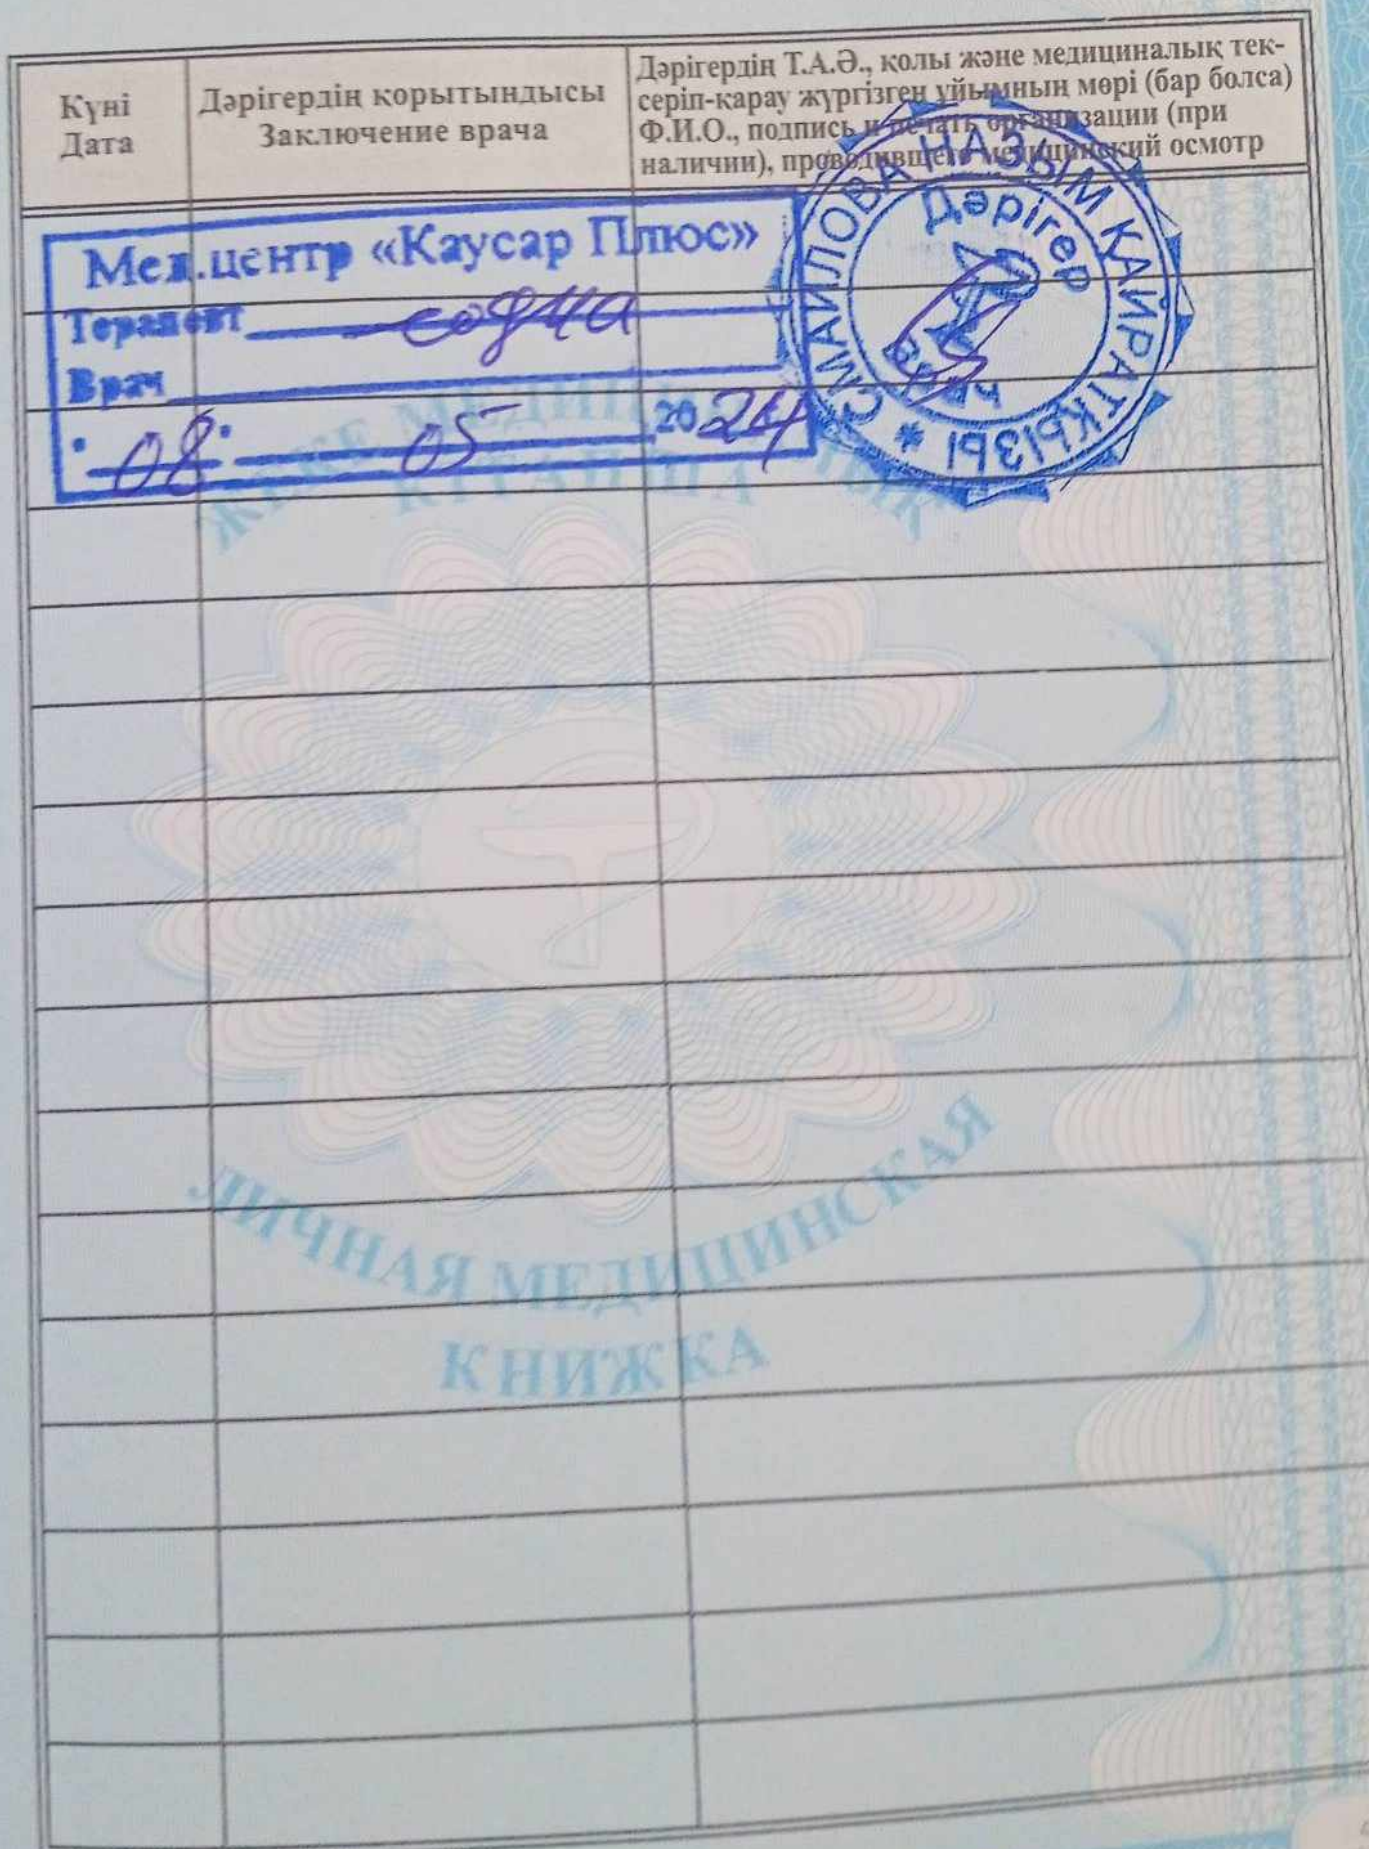 Күні
Дата
Дәрігердің қорытындысы
Заключение врача
Дәрігердің Т.А.Ә., қолы және медициналық тек-
серіп-қарау жүргізген ұйымның мөрі (бар болса)
Ф.И.О., подпись и печать организации (при
наличии), проводившего медицинский осмотр
Мед.центр «Каусар Плюс»
Терапевт годна
Врач
08 05 2024
СМАИЛОВА НАЗЫМ ҚАЙРАТҚЫЗЫ *
Дәрігер
Врач
ЖЕКЕ МЕДИЦИНАЛЫҚ
КІТАПША
ЛИЧНАЯ МЕДИЦИНСКАЯ
КНИЖКА